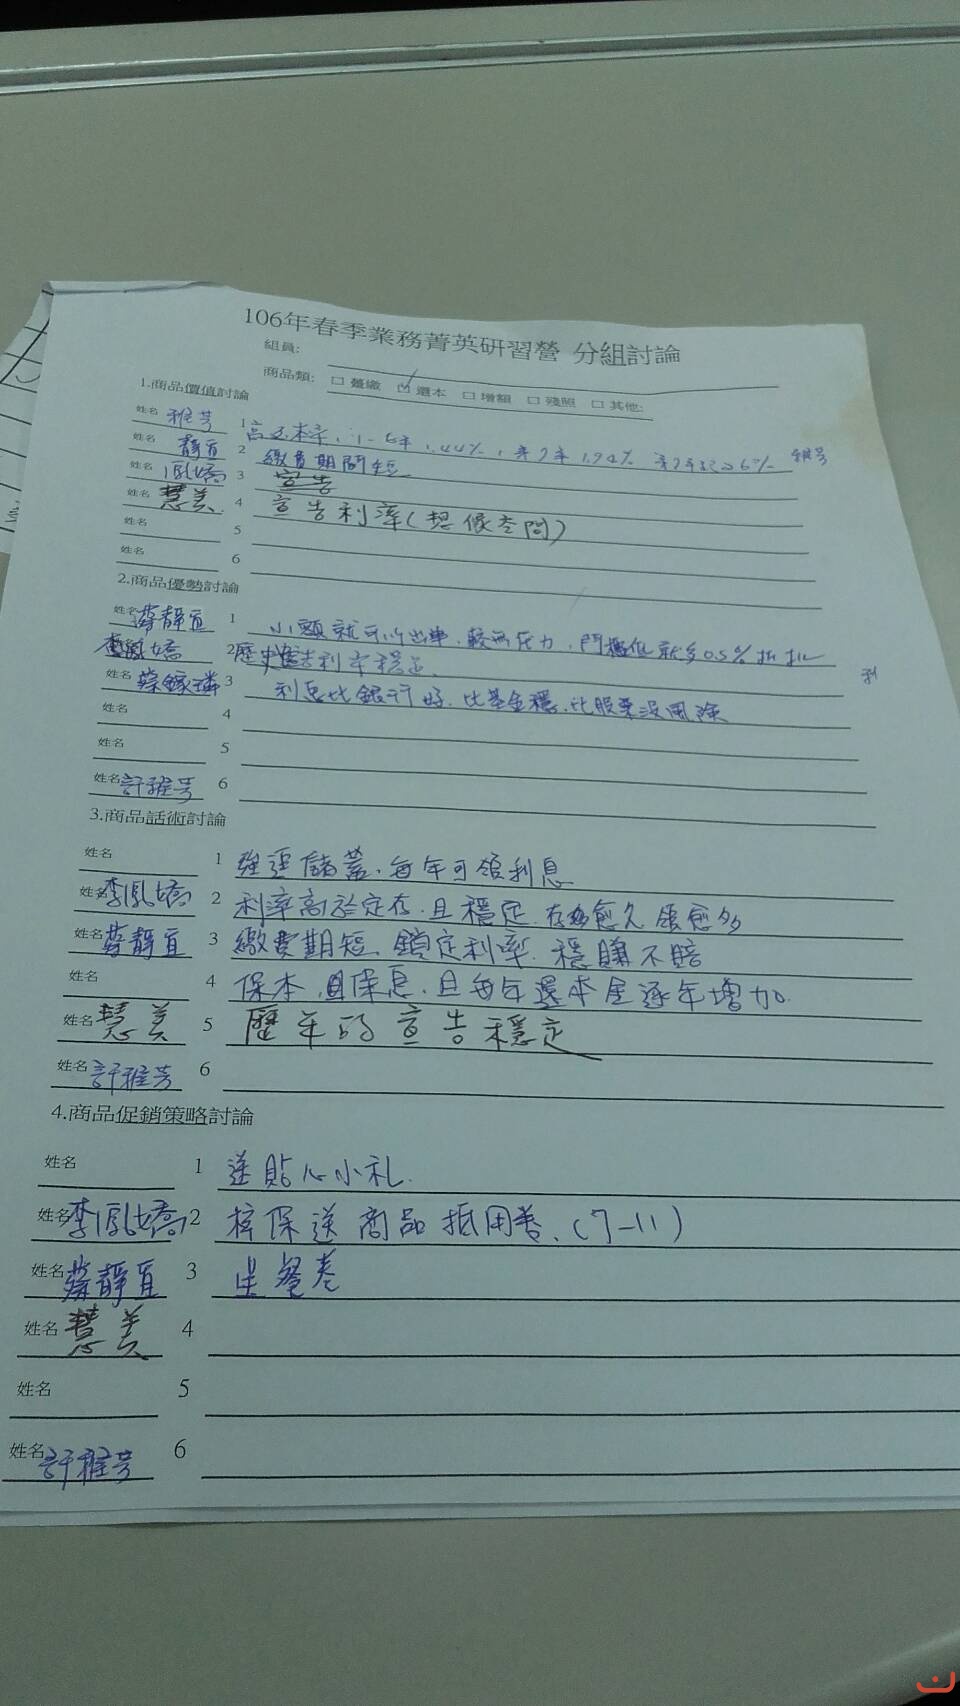 106年春季業務菁英研習營 分組討論
組員:
商品類: □ 躉繳 ☑ 還本 □ 增額 □ 殘照 □ 其他:
1.商品價值討論
姓名 雅芳 1 高还本率, 1-6年 1.44%, 第7年1.94%
姓名 靜宜 2 繳費期間短
姓名 鳳嬌 3 宣告
姓名 慧美 4 宣告利率(想像空間)
姓名 5
姓名 6
2.商品優勢討論
姓名 蔡靜宜 1 小額就可以出單,較無压力,門檻低就多0.5%折扣
姓名 李鳳嬌 2 歷史宣告利率穩定
姓名 3 利息比銀行好.比基金穩.比股票沒風險
姓名 4
姓名 5
姓名 許雅芳 6
3.商品話術討論
姓名 1 強迫儲蓄,每年可領利息
姓名 李鳳嬌 2 利率高於定存.且穩定.存愈久領愈多
姓名 蔡靜宜 3 繳費期短.鎖定利率.穩賺不賠
姓名 4 保本,且每年還本金逐年增加.
姓名 慧美 5 歷年的宣告穩定
姓名 許雅芳 6
4.商品促銷策略討論
姓名 1 送貼心小礼.
姓名 李鳳嬌 2 核保送商品抵用卷.(7-11)
姓名 蔡靜宜 3 餐卷
姓名 慧美 4
姓名 5
姓名 許雅芳 6